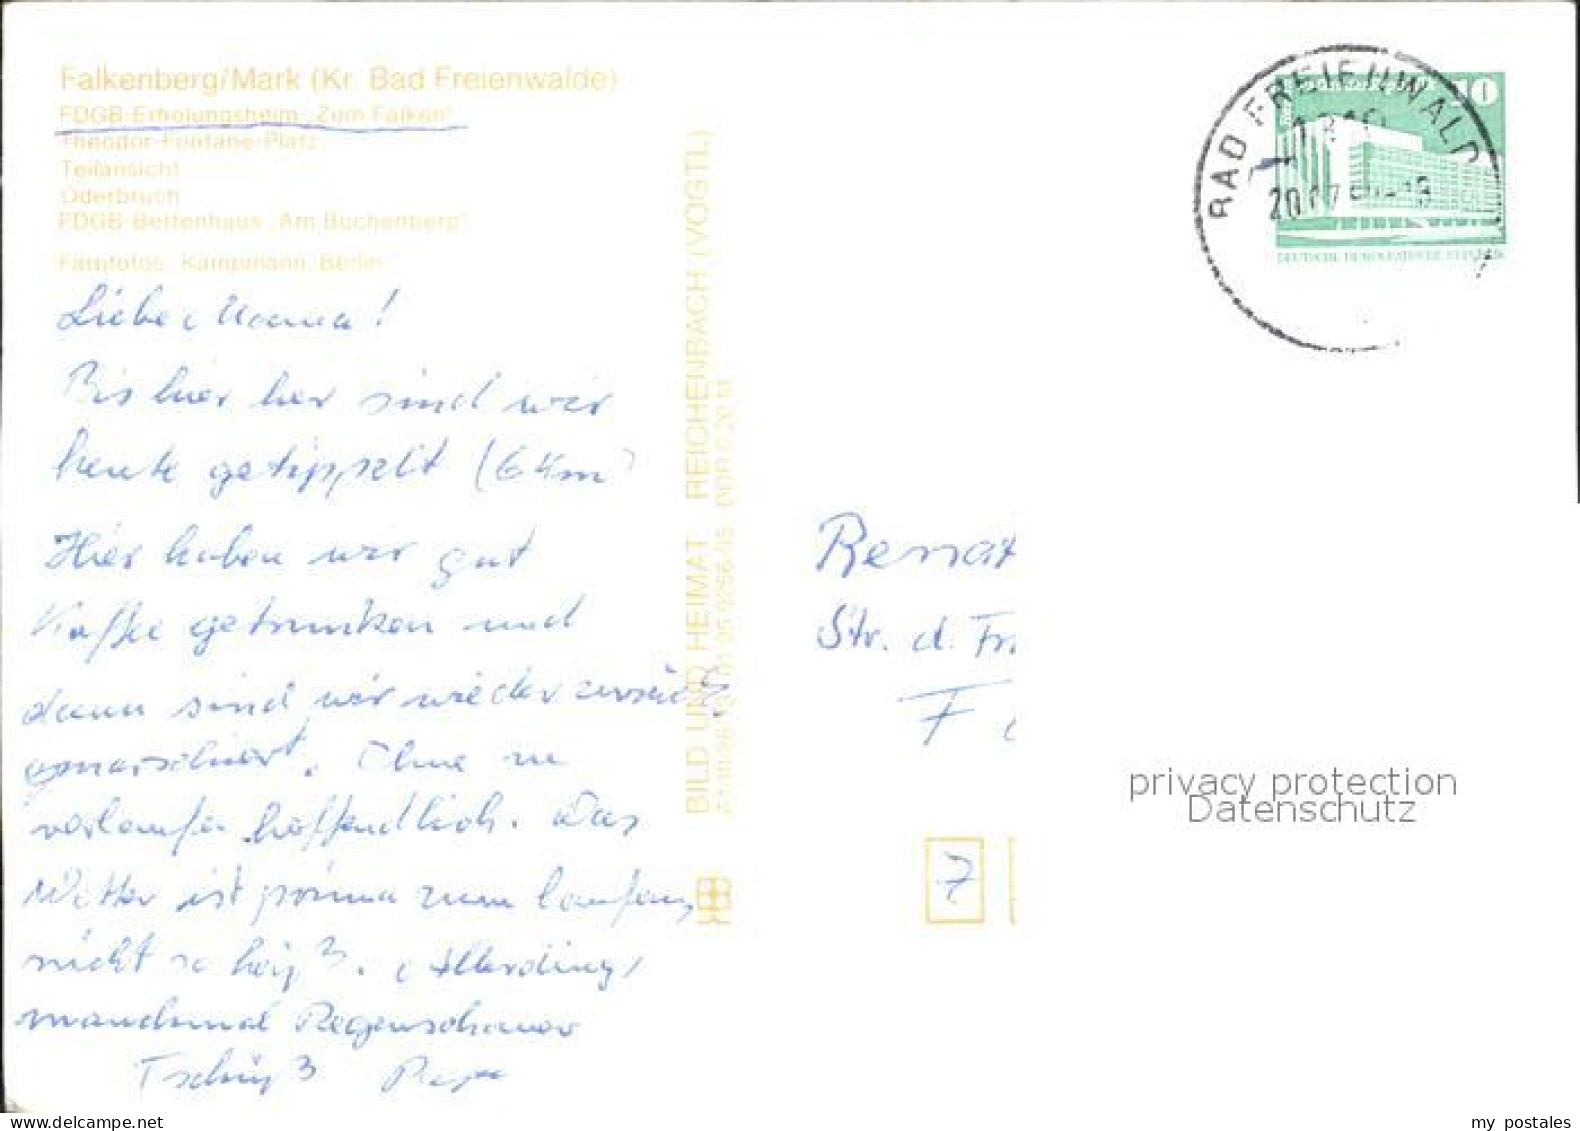 Falkenberg/Mark (Kr. Bad Freienwalde)
FDGB-Erholungsheim „Zum Falken"
Theodor-Fontane-Platz
Teilansicht
Oderbruch
FDGB-Bettenhaus „Am Buchenberg"
Farbfotos: Kampmann, Berlin
Liebe Mama!
Bis hier her sind wir
heute getippelt (6 km)
Hier haben wir gut
Kaffee getrunken und
dann sind wir wieder zurück
gmarschiert. Ohne zu
verlaufen hoffendlich. Das
Wetter ist prima zum laufen,
nicht so heiß. Allerdings
manchmal Regenschauer
Tschüß Papa
BILD UND HEIMAT REICHENBACH (VOGTL)
BAD FREIENWALD
1310
20.07
10
DEUTSCHE DEMOKRATISCHE REPUBLIK
Renat
Str. d. Fr
F
7
privacy protection
Datenschutz
my postales
delcampe.net